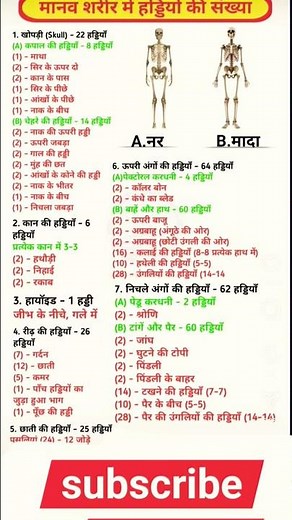 मानव शरीर में हड्डियों की संख्या
1. खोपड़ी (Skull) - 22 हड्डियाँ
(A) कपाल की हड्डियाँ - 8 हड्डियाँ
(1) - माथा
(2) - सिर के ऊपर दो
(2) - कान के पास
(1) - सिर के पीछे
(1) - आंखों के पीछे
(1) - नाक के बीच
(B) चेहरे की हड्डियाँ - 14 हड्डियाँ
(2) - नाक की ऊपरी हड्डी
(2) - ऊपरी जबड़ा
(2) - गाल की हड्डी
(2) - मुंह की छत
(2) - आंखों के कोने की हड्डी
(2) - नाक के भीतर
(1) - नाक के बीच
(1) - निचला जबड़ा
2. कान की हड्डियाँ - 6
हड्डियाँ
प्रत्येक कान में 3-3
(2) - हथौड़ी
(2) - निहाई
(2) - रकाब
3. हायॉइड - 1 हड्डी
जीभ के नीचे, गले में
4. रीढ़ की हड्डियाँ - 26
हड्डियाँ
(7) - गर्दन
(12) - छाती
(5) - कमर
(1) - पाँच हड्डियों का
जुड़ा हुआ भाग
(1) - पूँछ की हड्डी
5. छाती की हड्डियाँ - 25 हड्डियाँ
पसलियां (24) - 12 जोड़े
A.नर
B.मादा
6. ऊपरी अंगों की हड्डियाँ - 64 हड्डियाँ
(A)पेक्टोरल करधनी - 4 हड्डियाँ
(2) - कॉलर बोन
(2) - कंधे का ब्लेड
(B) बाहें और हाथ - 60 हड्डियाँ
(2) - ऊपरी बाजू
(2) - अग्रबाहु (अंगूठे की ओर)
(2) - अग्रबाहु (छोटी उंगली की ओर)
(16) - कलाई की हड्डियाँ (8-8 प्रत्येक हाथ में)
(10) - हथेली की हड्डियाँ (5-5)
(28) - उंगलियों की हड्डियाँ (14-14
7. निचले अंगों की हड्डियाँ - 62 हड्डियाँ
(A) पेडू करधनी - 2 हड्डियाँ
(2) - श्रोणि
(B) टांगें और पैर - 60 हड्डियाँ
(2) - जांघ
(2) - घुटने की टोपी
(2) - पिंडली
(2) - पिंडली के बाहर
(14) - टखने की हड्डियाँ (7-7)
(10) - पैर के बीच (5-5)
(28) - पैर की उंगलियों की हड्डियाँ (14-14)
subscribe